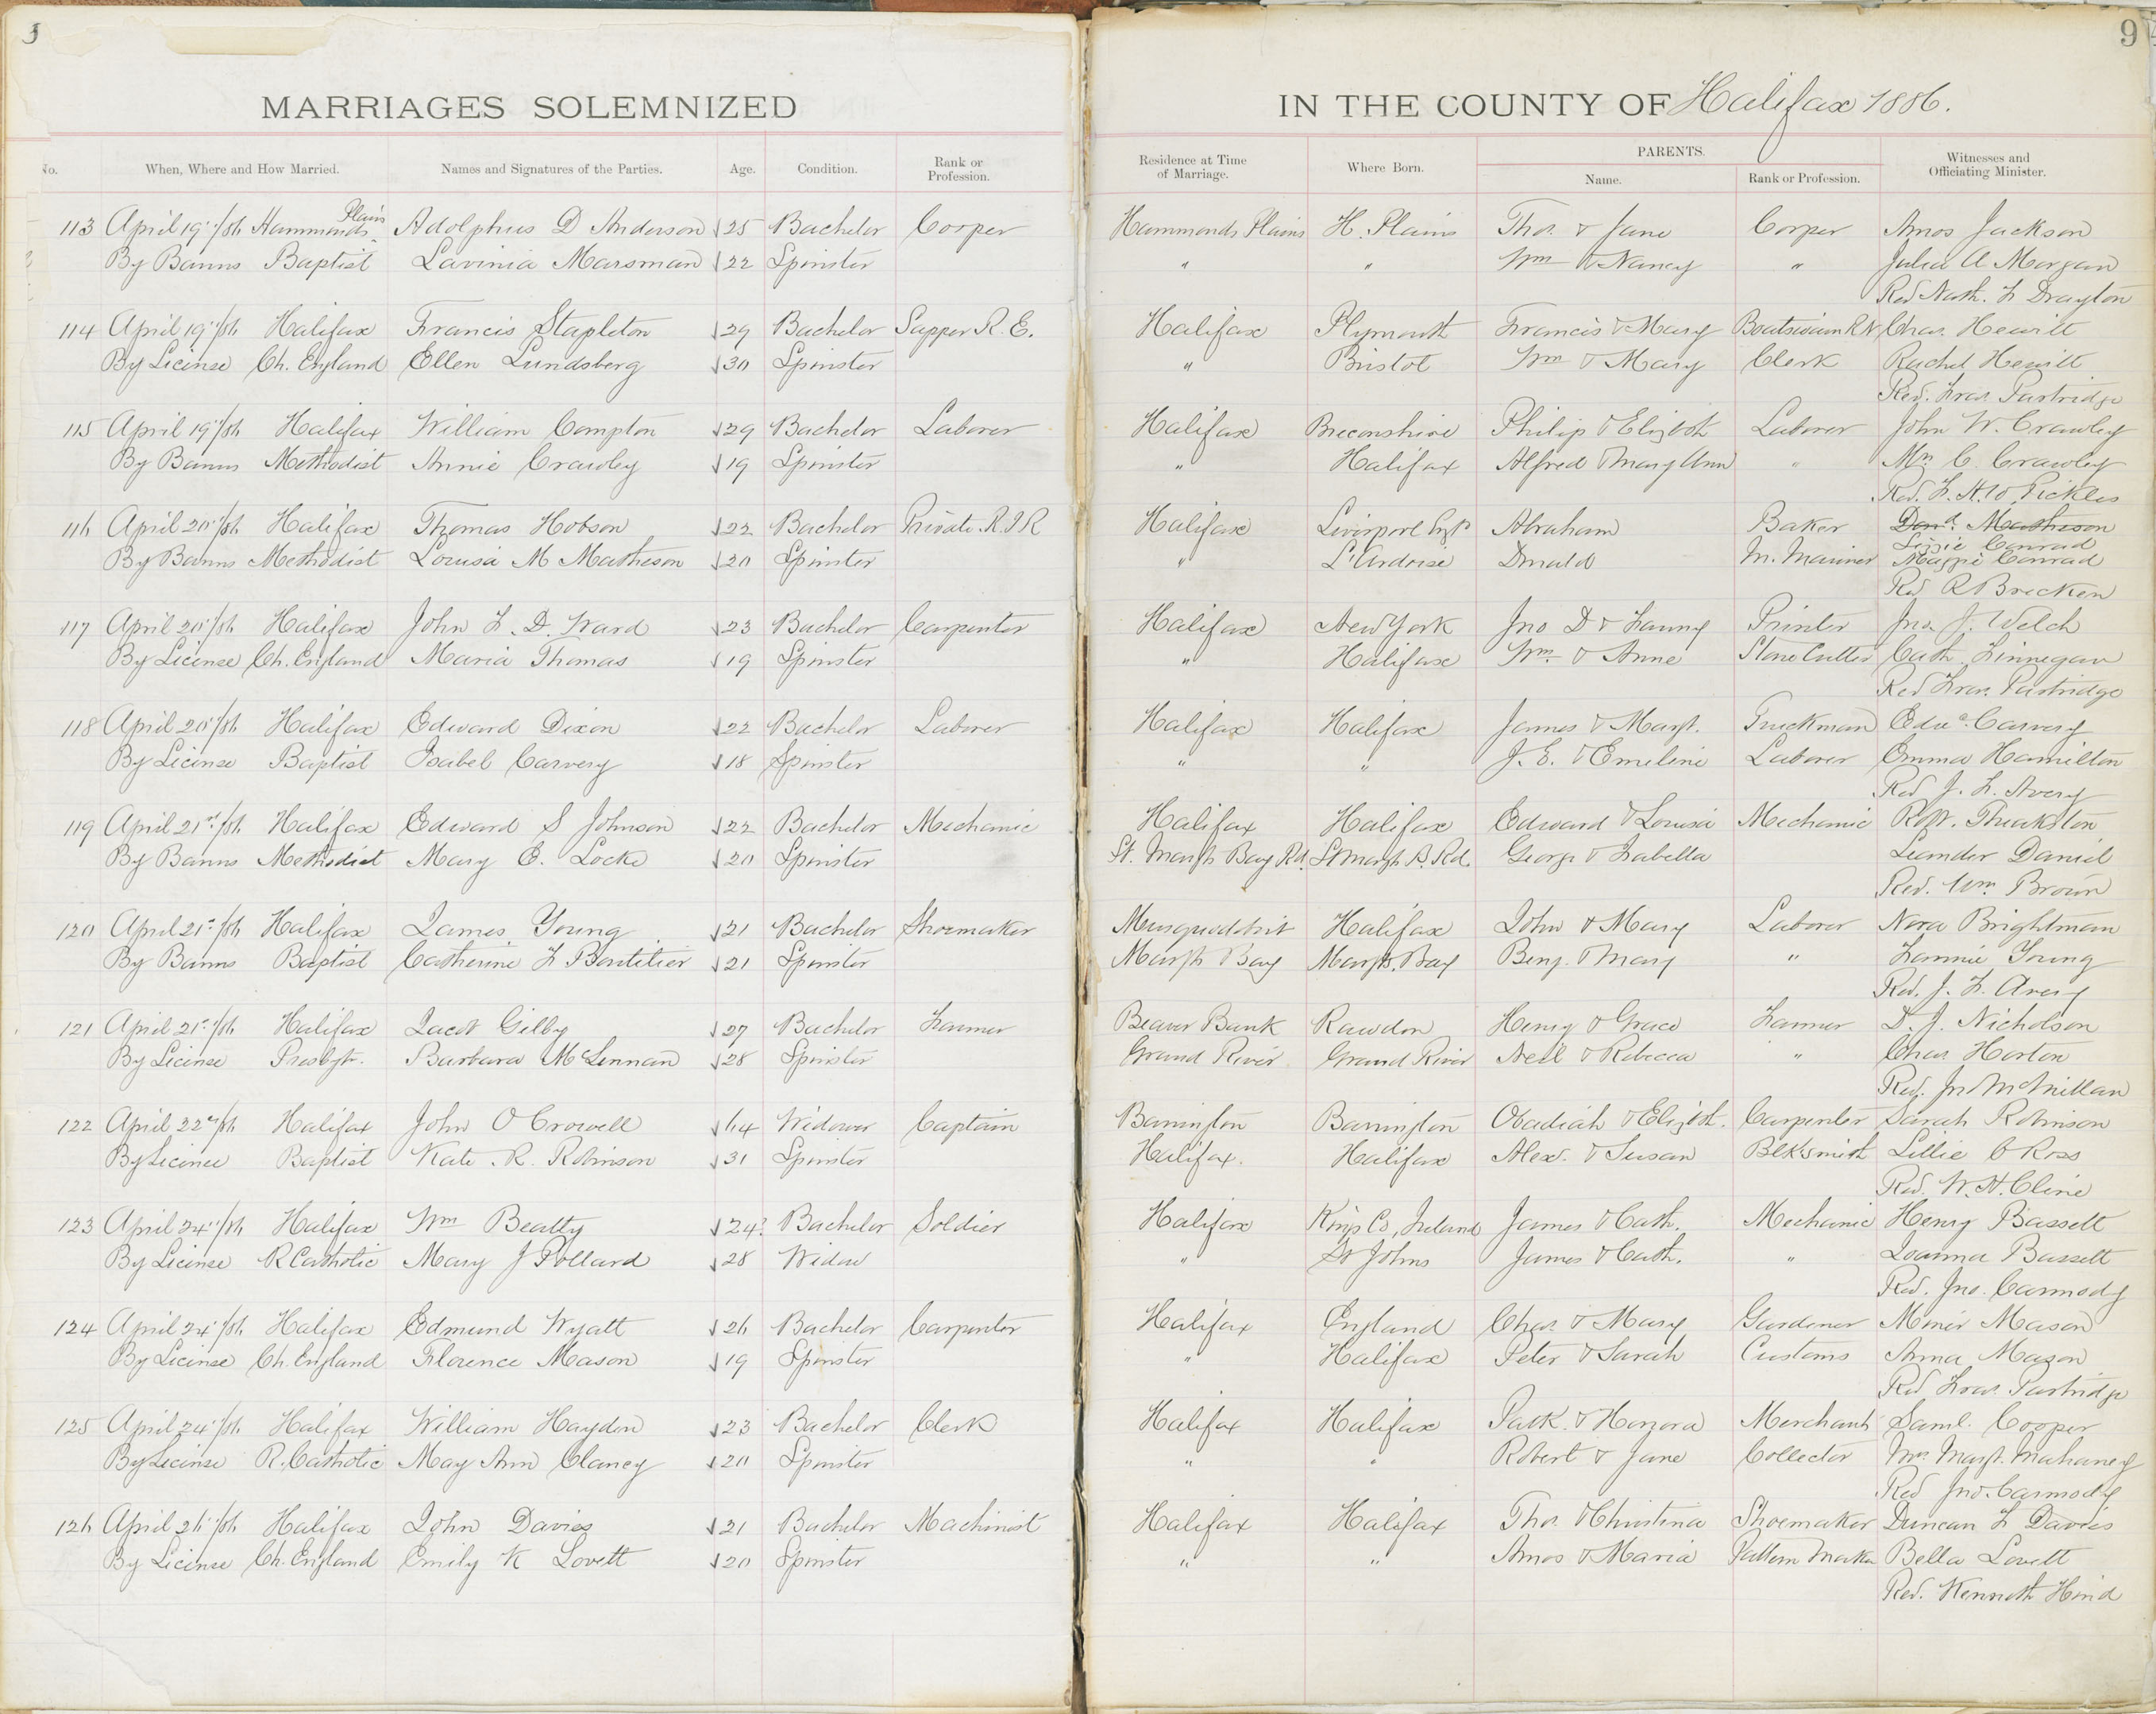 9
MARRIAGES SOLEMNIZED IN THE COUNTY OF Halifax 1886.
No. When, Where and How Married. Names and Signatures of the Parties. Age. Condition. Rank or Profession. Residence at Time of Marriage. Where Born. PARENTS. Name. Rank or Profession. Witnesses and Officiating Minister.
113 April 19"/86 Hammonds Plains Adolphus D Anderson 25 Bachelor Cooper Hammonds Plains H. Plains Thos. & Jane Cooper Amos Jackson
By Banns Baptist Lavinia Marsman 22 Spinster " " Wm & Nancy " Julia A Morgan
Rev Nath. F Drayton
114 April 19"/86 Halifax Francis Stapleton 29 Bachelor Sapper R. E. Halifax Plymouth Francis & Mary Boatswain RN Chas. Hewitt
By License Ch. England Ellen Lundsberg 30 Spinster " Bristol Wm & Mary Clerk Rachel Hewitt
Rev. Fras. Partridge
115 April 19"/86 Halifax William Compton 29 Bachelor Laborer Halifax Breconshire Philip & Elizbth Laborer John W. Crawley
By Banns Methodist Annie Crawley 19 Spinster " Halifax Alfred & Mary Ann " Mrs C. Crawley
Rev. F. H. W. Pickles
116 April 20"/86 Halifax Thomas Hobson 22 Bachelor Private. R.I.R Halifax Liverpool Abraham Baker Dond. Matheson
Lizzie Conrad
By Banns Methodist Louisa M Matheson 20 Spinster " L'Ardoise Donald M. Mariner Maggie Conrad
Rev R Brecken
117 April 20"/86 Halifax John F. D. Ward 23 Bachelor Carpenter Halifax New York Jno D & Fanny Printer Jno J. Welch
By License Ch. England Maria Thomas 19 Spinster " Halifax Wm. & Anne Stone Cutter Cath Finnegan
Rev Fras. Partridge
118 April 20"/86 Halifax Edward Dixon 22 Bachelor Laborer Halifax Halifax James & Margt. Truckman Edwd. Carvery
By License Baptist Isabel Carvery 18 Spinster " " J. E. & Emeline Laborer Emma Hamilton
Rev J. F. Avery
119 April 21st/86 Halifax Edward S Johnson 22 Bachelor Mechanic Halifax Halifax Edward & Louisa Mechanic Robt. Theakston
By Banns Methodist Mary E. Locke 20 Spinster St. Margts Bay Rd. St Margts B. Rd. George & Isabella Leander Daniel
Rev. Wm. Brown
120 April 21st/86 Halifax James Young 21 Bachelor Shoemaker Musquodobit Halifax John & Mary Laborer Nora Brightman
By Banns Baptist Catherine F Boutilier 21 Spinster Margts Bay Margts. Bay Benj. & Mary " Fannie Young
Rev. J. F. Avery
121 April 21st/86 Halifax Jacob Gilby 27 Bachelor Farmer Beaver Bank Rawdon Henry & Grace Farmer D. J. Nicholson
By License Presbytr. Barbara McLennan 28 Spinster Grand River Grand River Neil & Rebecca " Chas Horton
Rev. Jno McMillan
122 April 22nd/86 Halifax John O Crowell 64 Widower Captain Barrington Barrington Obediah & Elizbth. Carpenter Sarah Robinson
By Licence Baptist Kate. R. Robinson 31 Spinster Halifax. Halifax Alex. & Susan Blk'smith Lillie C Ross
Rev. W. H. Cline
123 April 24"/86 Halifax Wm Beatty 24? Bachelor Soldier Halifax King's Co, Ireland James & Cath. Mechanic Henry Bassett
By License R Catholic Mary J Pollard 28 Widow " St Johns James & Cath. " Joanna Bassett
Rev. Jno. Carmody
124 April 24"/86 Halifax Edmund Wyatt 26 Bachelor Carpenter Halifax England Chas. & Mary Gardener Minir Mason
By License Ch. England Florence Mason 19 Spinster " Halifax Peter & Sarah Customs Anna Mason
Rev Fras. Partridge
125 April 24"/86 Halifax William Hayden 23 Bachelor Clerk Halifax Halifax Patk. & Honora Merchant Saml. Cooper
By License R. Catholic May Ann Clancy 20 Spinster " " Robert & Jane Collector Mrs Margt. Mahaney
Rev Jno. Carmody
126 April 26"/86 Halifax John Davies 21 Bachelor Machinist Halifax Halifax Thos. & Christina Shoemaker Duncan F Davies
By License Ch. England Emily K Lovett 20 Spinster " " Amos & Maria Pattern Maker Bella Lovett
Rev. Kenneth Hind